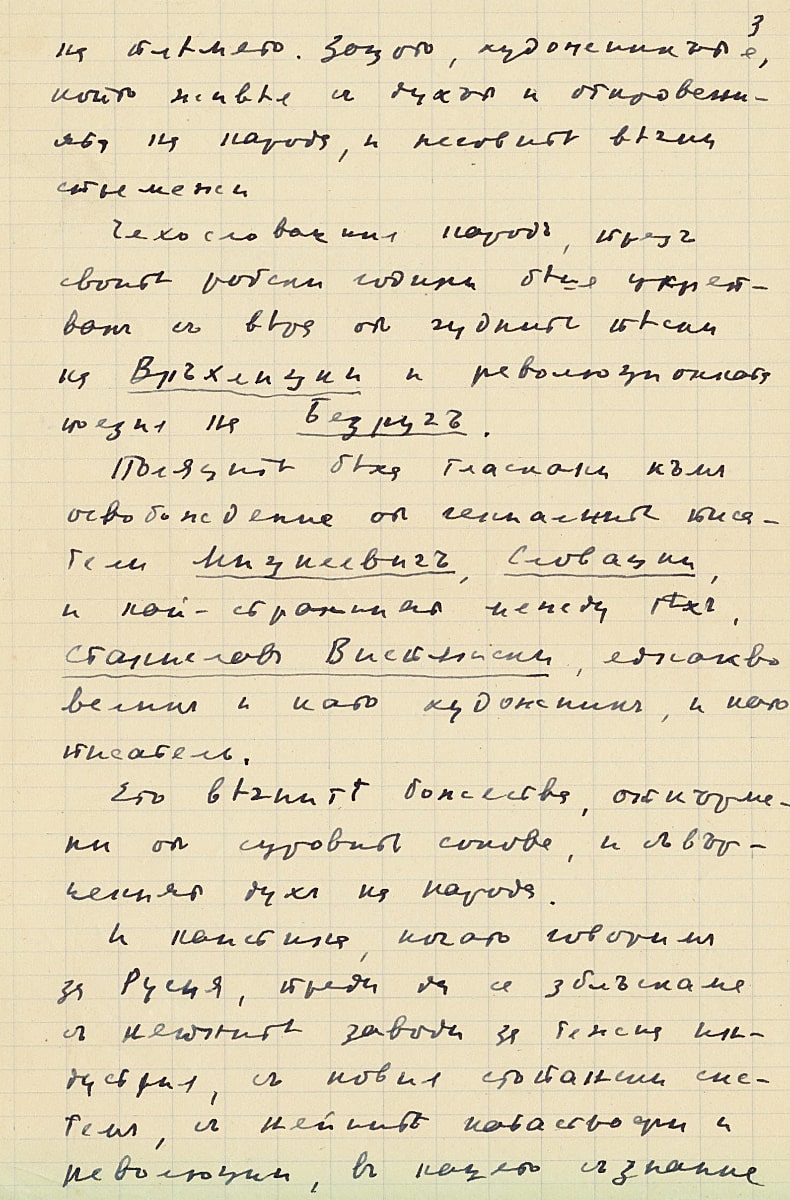 3
на племето. Защото, художникътъ е,
който живѣе съ духътъ и откровени-
ята на народа, и неговитѣ вѣчни
стремежи
Чехословакия народъ, презъ
своитѣ робски години бѣше укреп-
ванъ съ вѣра отъ чуднитѣ пѣсни
на Връхлицки и революционната
поезия на Безручъ.
Поляцитѣ бѣха тласкани къмъ
освобождение отъ гениалнитѣ писа-
тели Мицкевичъ, Словацки,
и най-странния между тѣхъ,
Станиславъ Виспянски, еднакво
великъ и като художникъ, и като
писатель.
Ето вѣчнитѣ божества, откърме-
ни отъ суровитѣ сокове, и
духъ на народа.
И наистина, когато говоримъ
за Русия, преди да се сблъскаме
съ нейнитѣ заводи за тежка ин-
дустрия, съ новия стопански сис-
темъ, съ нейнитѣ катастрофи и
революции, въ нашето съзнание